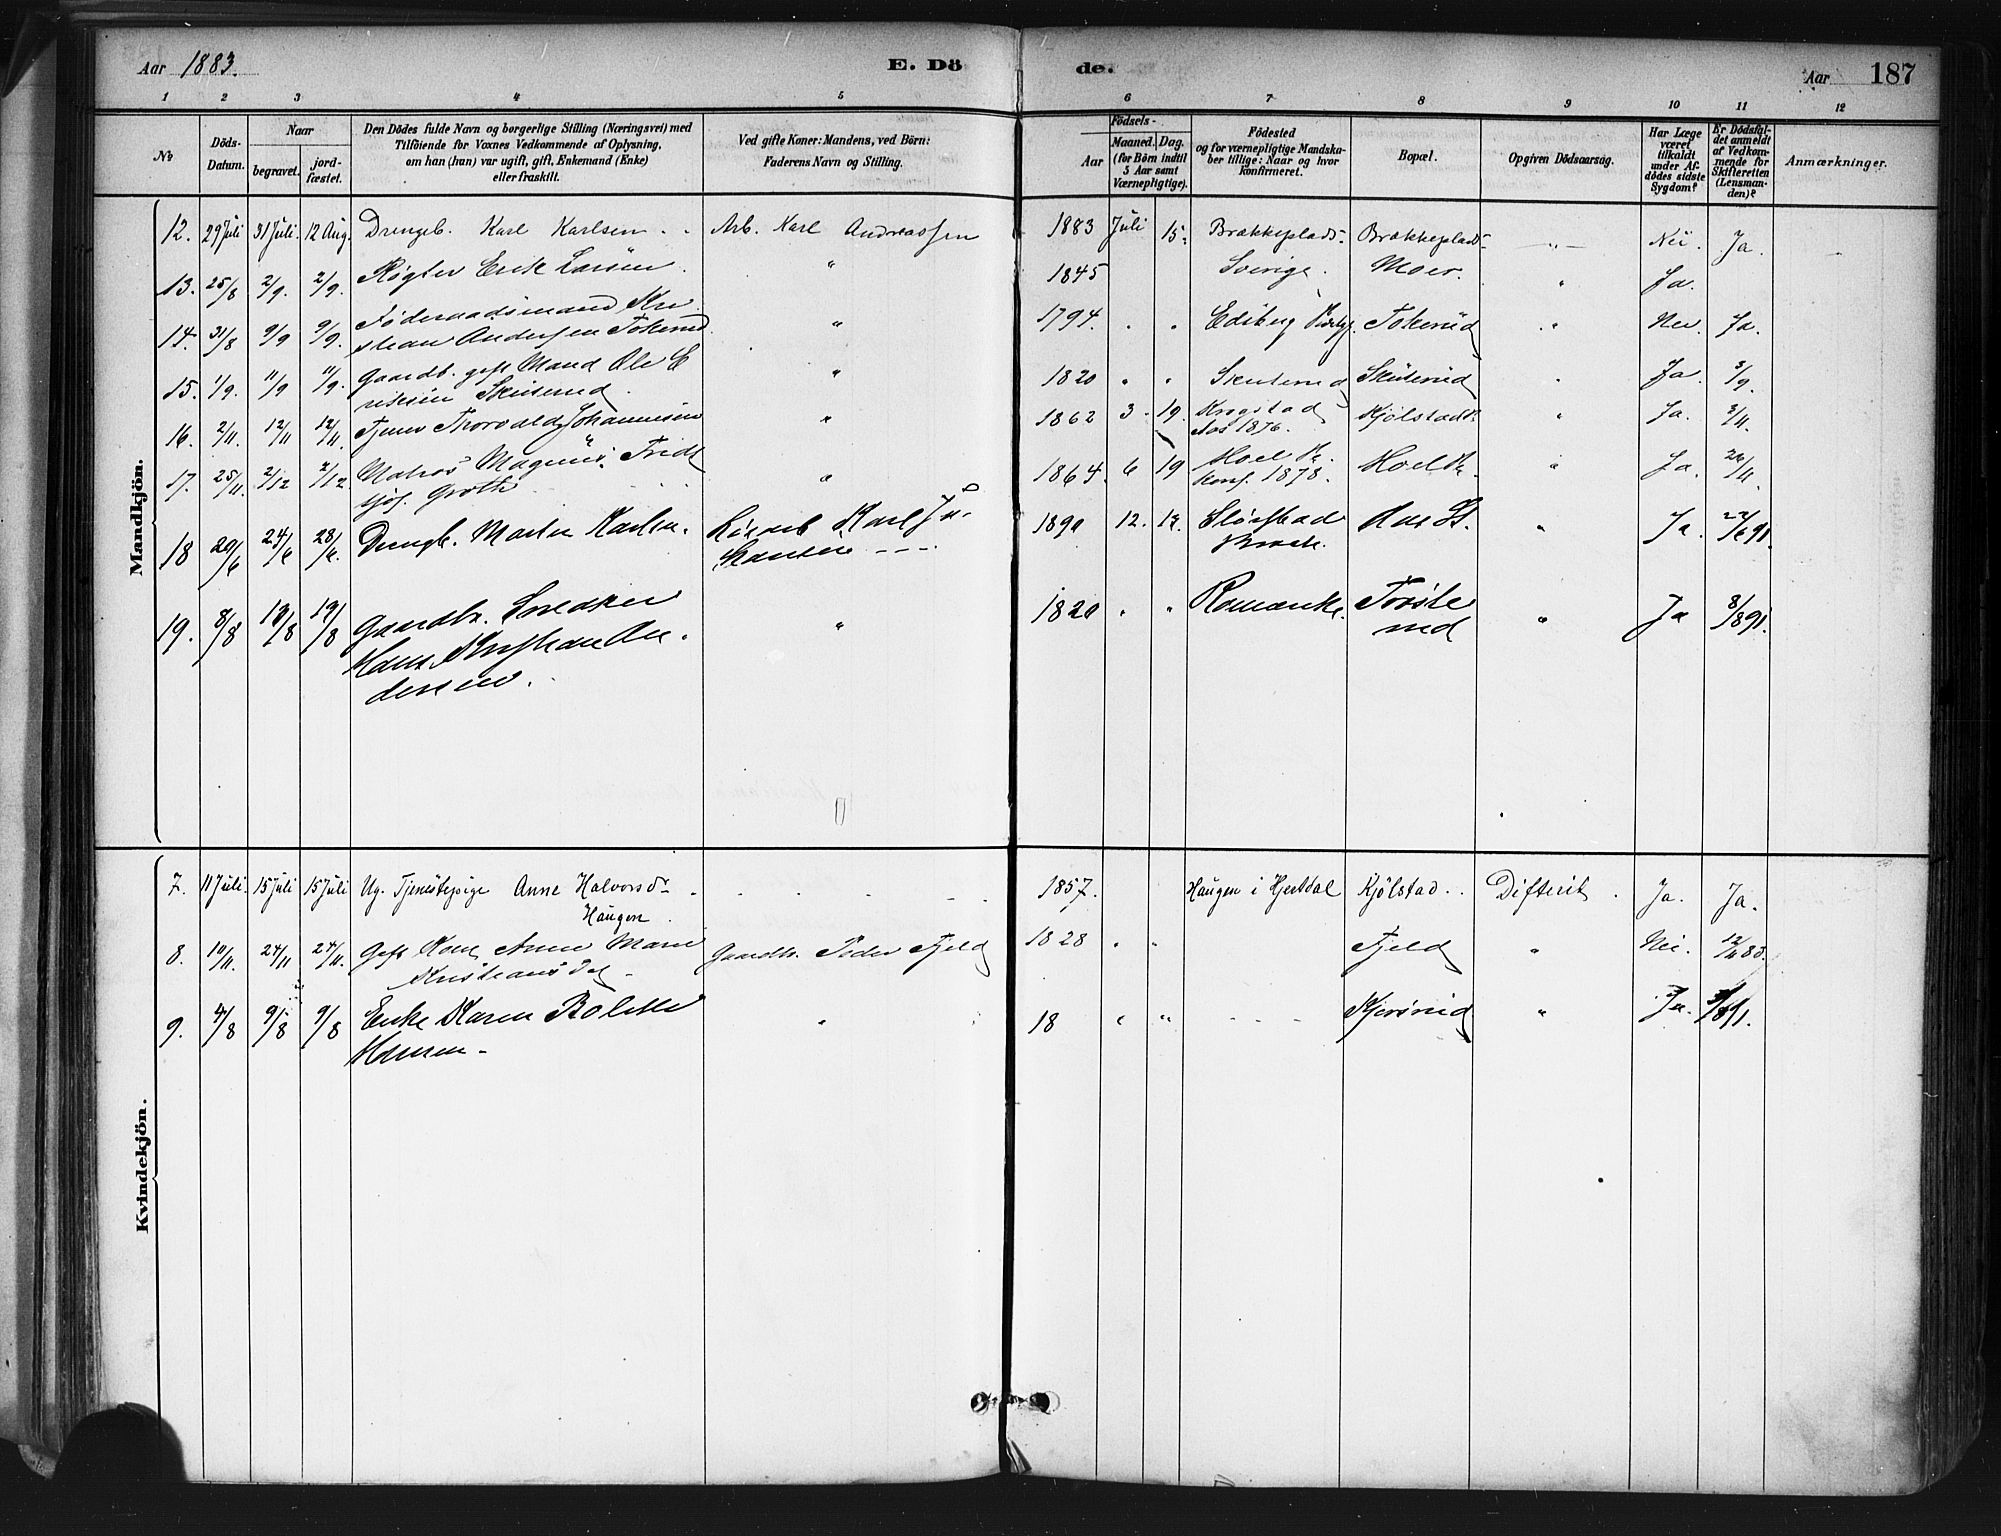 Aar 1883. E. Dö de. Aar 187
1 2 3 4 5 6 7 8 9 10 11 12
No
Döds-Datum.
Naar
begravet.
jord-fæstet.
Den Dödes fulde Navn og borgerlige Stilling (Næringsvei) med
Tilföiende for Voxnes Vedkommende af Oplysning,
om han (hun) var ugift, gift, Enkemand (Enke)
eller fraskilt.
Ved gifte Koner: Mandens, ved Börn:
Faderens Navn og Stilling.
Födsels-
Aar
Maaned. Dag.
(for Börn indtil
5 Aar samt
Værnepligtige).
Födested
og for værnepligtige Mandska-
ber tillige: Naar og hvor
konfirmeret.
Bopæl.
Opgiven Dödsaarsag.
Har Læge
været
tilkaldt
under Af-
dödes sidste
Sygdom?
Er Dödsfal-
det anmeldt
af Vedkom-
mende for
Skifteretten
(Lensman-
den)?
Anmærkninger.
Mandkjön.
12. 29 Juli 31 Juli. 12 Aug. Drengeb. Karl Karlsen Arb. Karl Andreassen 1883 Juli 15. Brækkeplads Brækkeplads " Nei Ja.
13. 25/8 2/9. 2/9. Røgter Erik Larsen. " 1845 Sverige. Moer. " Ja.
14. 31/8 9/9 9/9. Föderaadsmand Kri
stian Andersen Tokerud " 1794. " " Edsberg Tokerud " Nei. Ja.
15. 1/9. 11/9 11/9. Gaardb. gift Mand Ole E
riksen Skuterud. " 1820 " " Skuterud Skuterud " Ja. 3/9.
16. 2/11. 12/11 12/11. Tjener Thorvald Johannesen " 1862 3. 19. Krogstad
Aas 1876. Kjölstad " Ja. 3/11.
17. 25/11. 2/12 2/12. Matros Magnus Fridt
jof Groth " 1864. 6 19 Hoel
Konf. 1878. Hoel " Ja. 26/11.
18 20/6 24/6 28/6. Drengb. Martin Karlsen. Karl Jo- 1890 12. Aas St. " Ja. 22/6 91.
19. 8/8 18/8 19/8 Gaardbr. Snedker
Hans Kristian An
dersen. " 1820 " " Romerike. Trøste
rud " Ja 8/8 91.
Kvindekjön.
7. 11 Juli. 15 Juli 15 Juli Ug. Tjenestepige Anne Halvorsdr
Haugen. 1857. Haugen i Hjertdal Kjölstad. Difterit. Ja. Ja.
8. 10/11. 24/11 24/11. Gift Kone Anne Marie
Kristiansd. Gaardbr. Peder Fjeld 1828 " " Fjeld " Nei. 12/11 83.
9. 4/8 9/8 9/8 Enke Karen Bolette
Hansen. " 18 " " Kjersrud " Ja. 5/8 91.